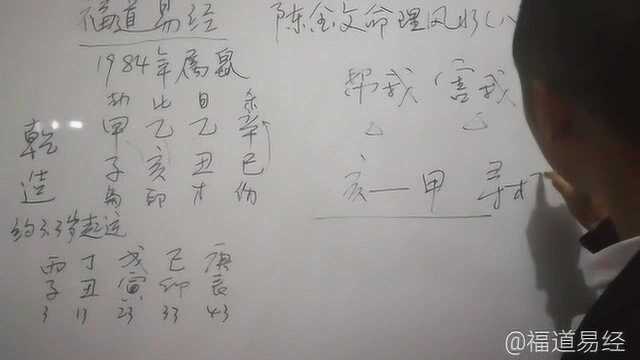 福道易经 陈全文命理风水(八
1984年属鼠
劫 比 日 杀
甲 乙 乙 辛
子 亥 丑 巳
枭 印 才 伤
乾造
约3.3岁起运
丙 丁 戊 己 庚
子 丑 寅 卯 辰
3 13 23 33 43
帮我 害我
△ △
亥—甲 寻
@福道易经